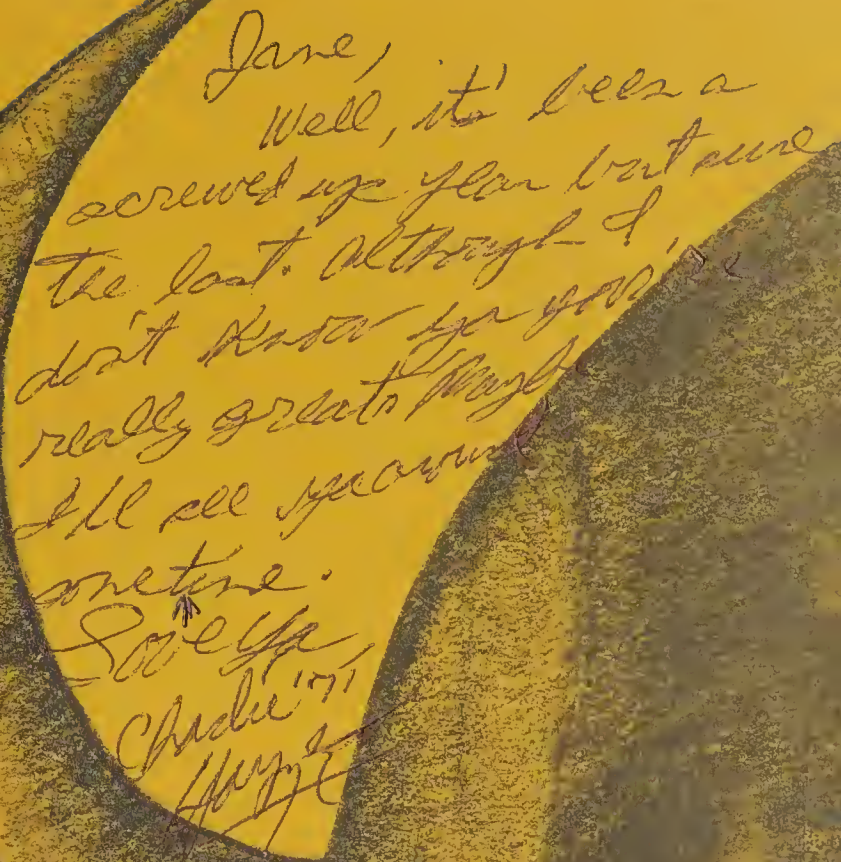 Jane,
Well, it's been a
screwed up year but sure
the last. Although I
don't know ya you're
really great. Maybe
I'll see ya around
sometime.
Love Ya
Charlie '71